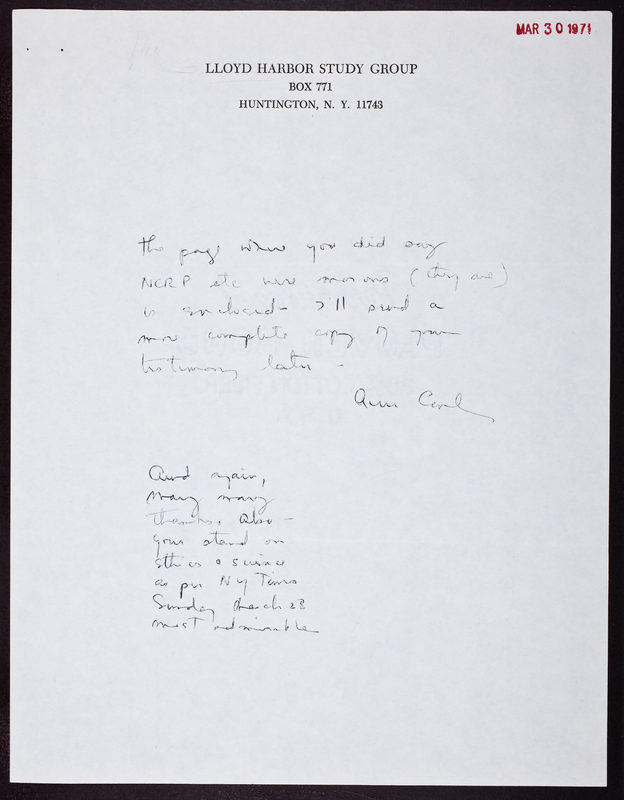 MAR 30 1971
LLOYD HARBOR STUDY GROUP
BOX 771
HUNTINGTON, N. Y. 11743
The page where you did say
NCRP etc were morons (they are)
is enclosed - I'll send a
more complete copy of your
testimony later -
Ann Carl
And again,
many many
thanks. Also -
your stand on
ethics & science
as per NY Times
Sunday March 28
most admirable